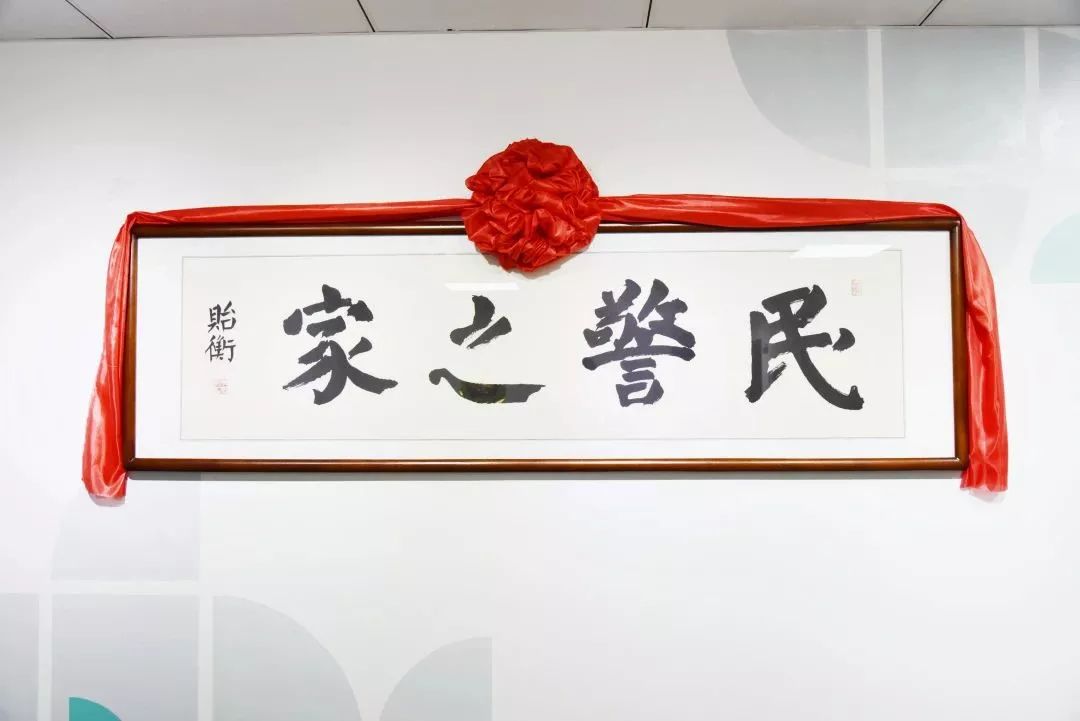 民警之家
貽衡